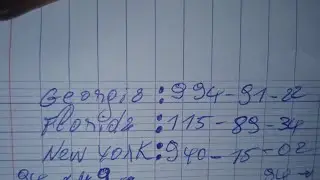 Georgia:994-91-22
Florida:115-89-34
New York:940-15-02